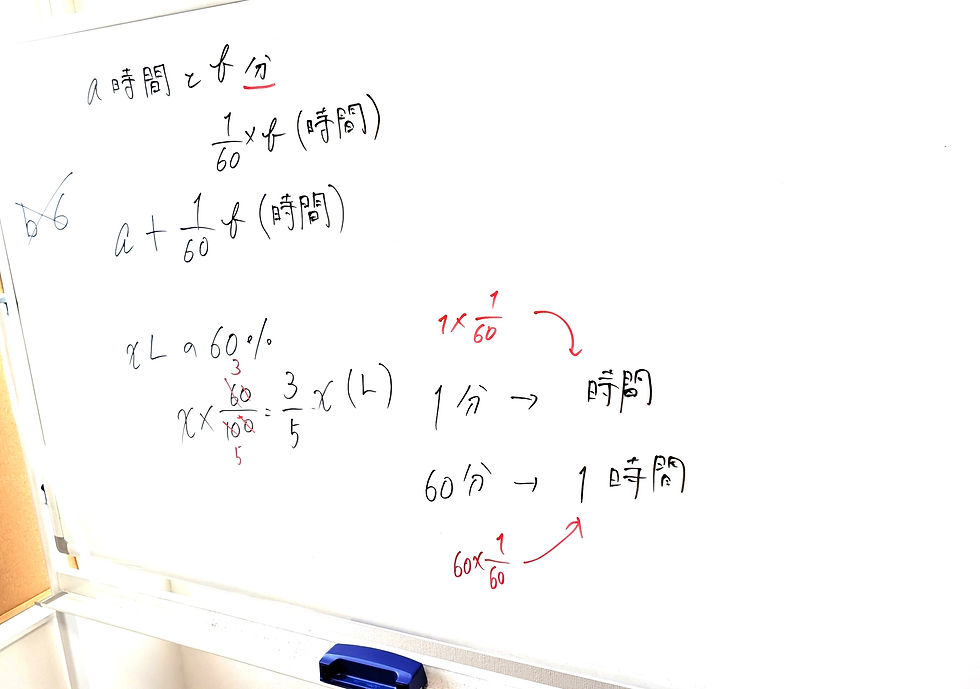 a時間とb分
1/60×b(時間)
b6
a+1/60b(時間)
xLの60%
x×60/100=3/5x(L)
3
5
1×1/60
1分→ 時間
60分→1時間
60×1/60